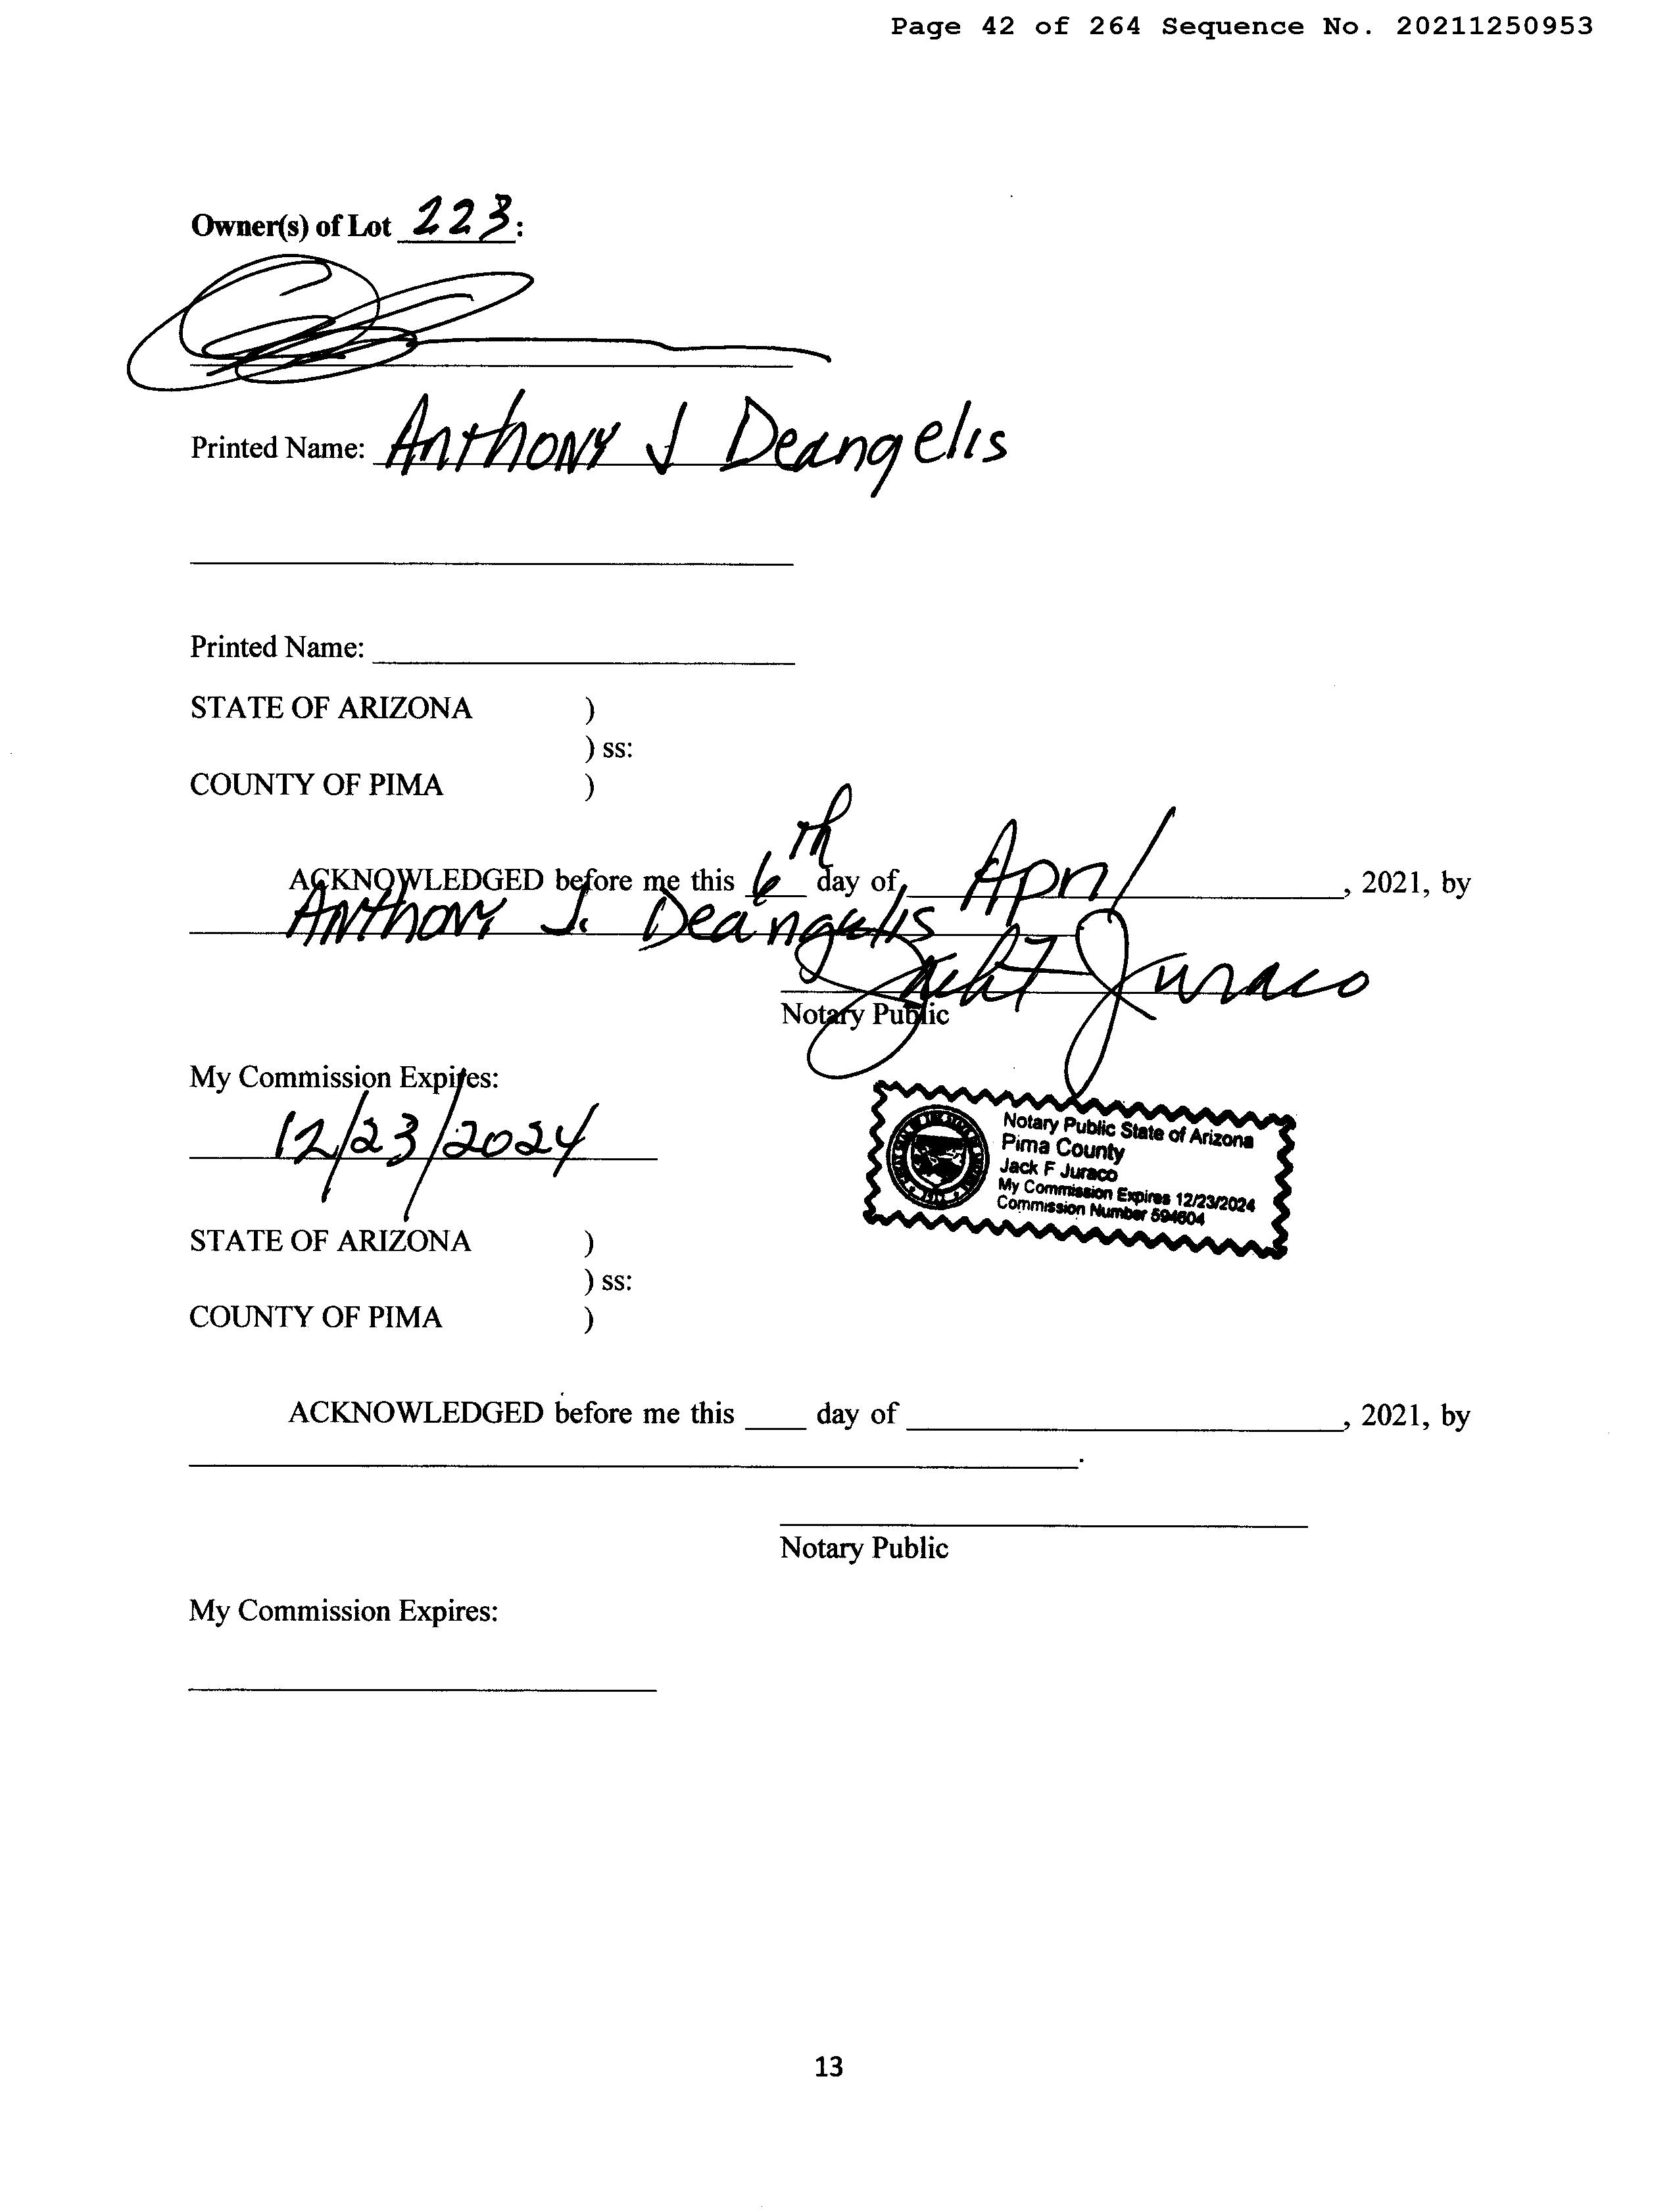 Page 42 of 264 Sequence No. 20211250953
Owner(s) of Lot 223:
Printed Name: Anthony J Deangelis
Printed Name:
STATE OF ARIZONA )
) ss:
COUNTY OF PIMA )
ACKNOWLEDGED before me this 6th day of April, 2021, by
Anthony J. Deangelis
Jack F Juraco
Notary Public
My Commission Expires:
12/23/2024
Notary Public State of Arizona
Pima County
Jack F Juraco
My Commission Expires 12/23/2024
Commission Number 594604
STATE OF ARIZONA )
) ss:
COUNTY OF PIMA )
ACKNOWLEDGED before me this ____ day of ____, 2021, by
.
Notary Public
My Commission Expires:
13